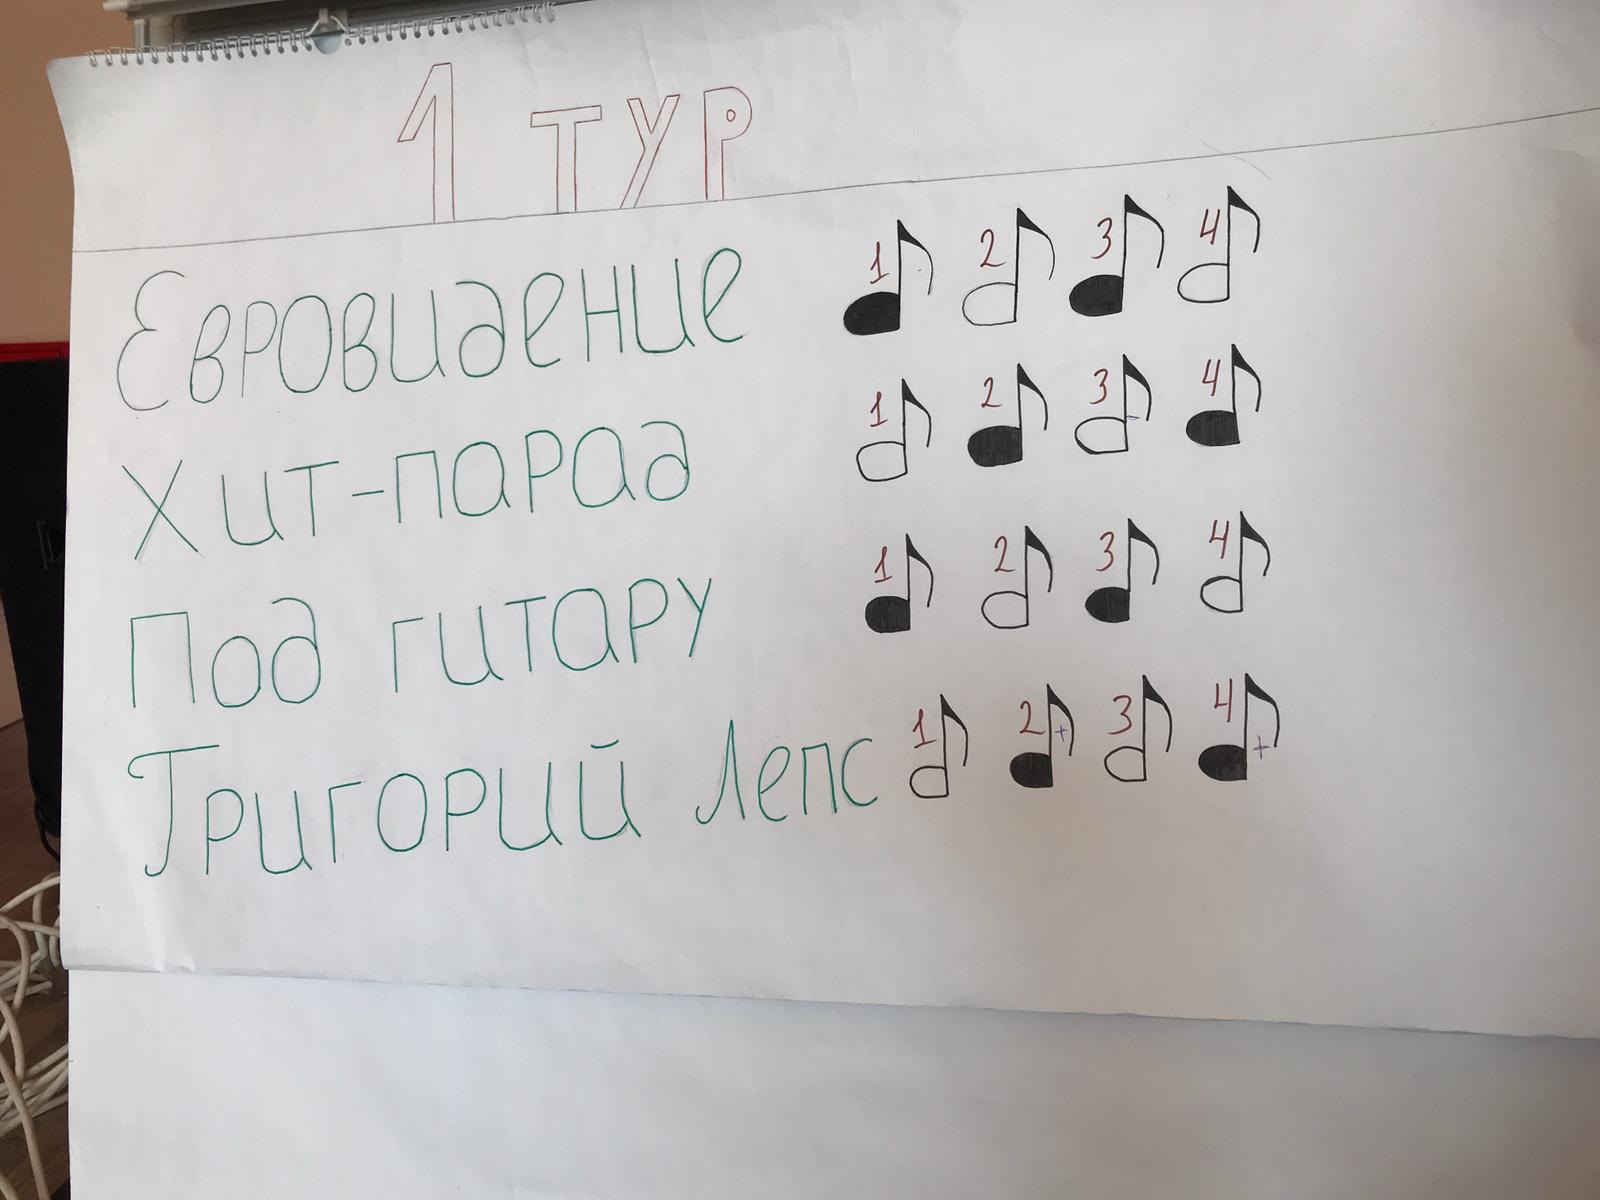 1 тур
Евровидение 1 2 3 4
Хит-парад 1 2 3 4
Под гитару 1 2 3 4
Григорий Лепс 1 2 + 3 4 +